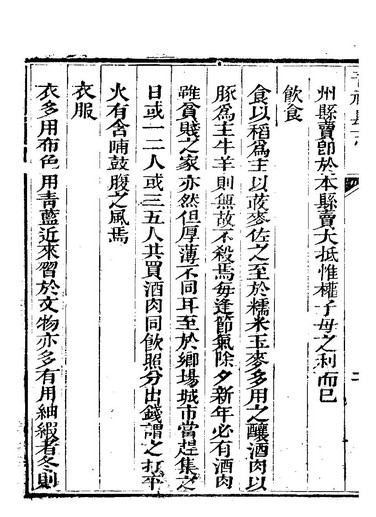 州縣賣卽於本縣賣大抵惟權子母之利而巳
飲食
食以稻爲主以菽麥佐之至於糯米玉麥多用之釀酒肉以
豚爲主牛羊則無故不殺焉每逢節氣除夕新年必有酒肉
雖貧賤之家亦然但厚薄不同耳至於鄉場城市當趕集之
日或一二人或三五人共買酒肉同飲照分出錢謂之打平
火有含哺鼓腹之風焉
衣服
衣多用布色用靑藍近來習於文物亦多有用紬緞者冬則